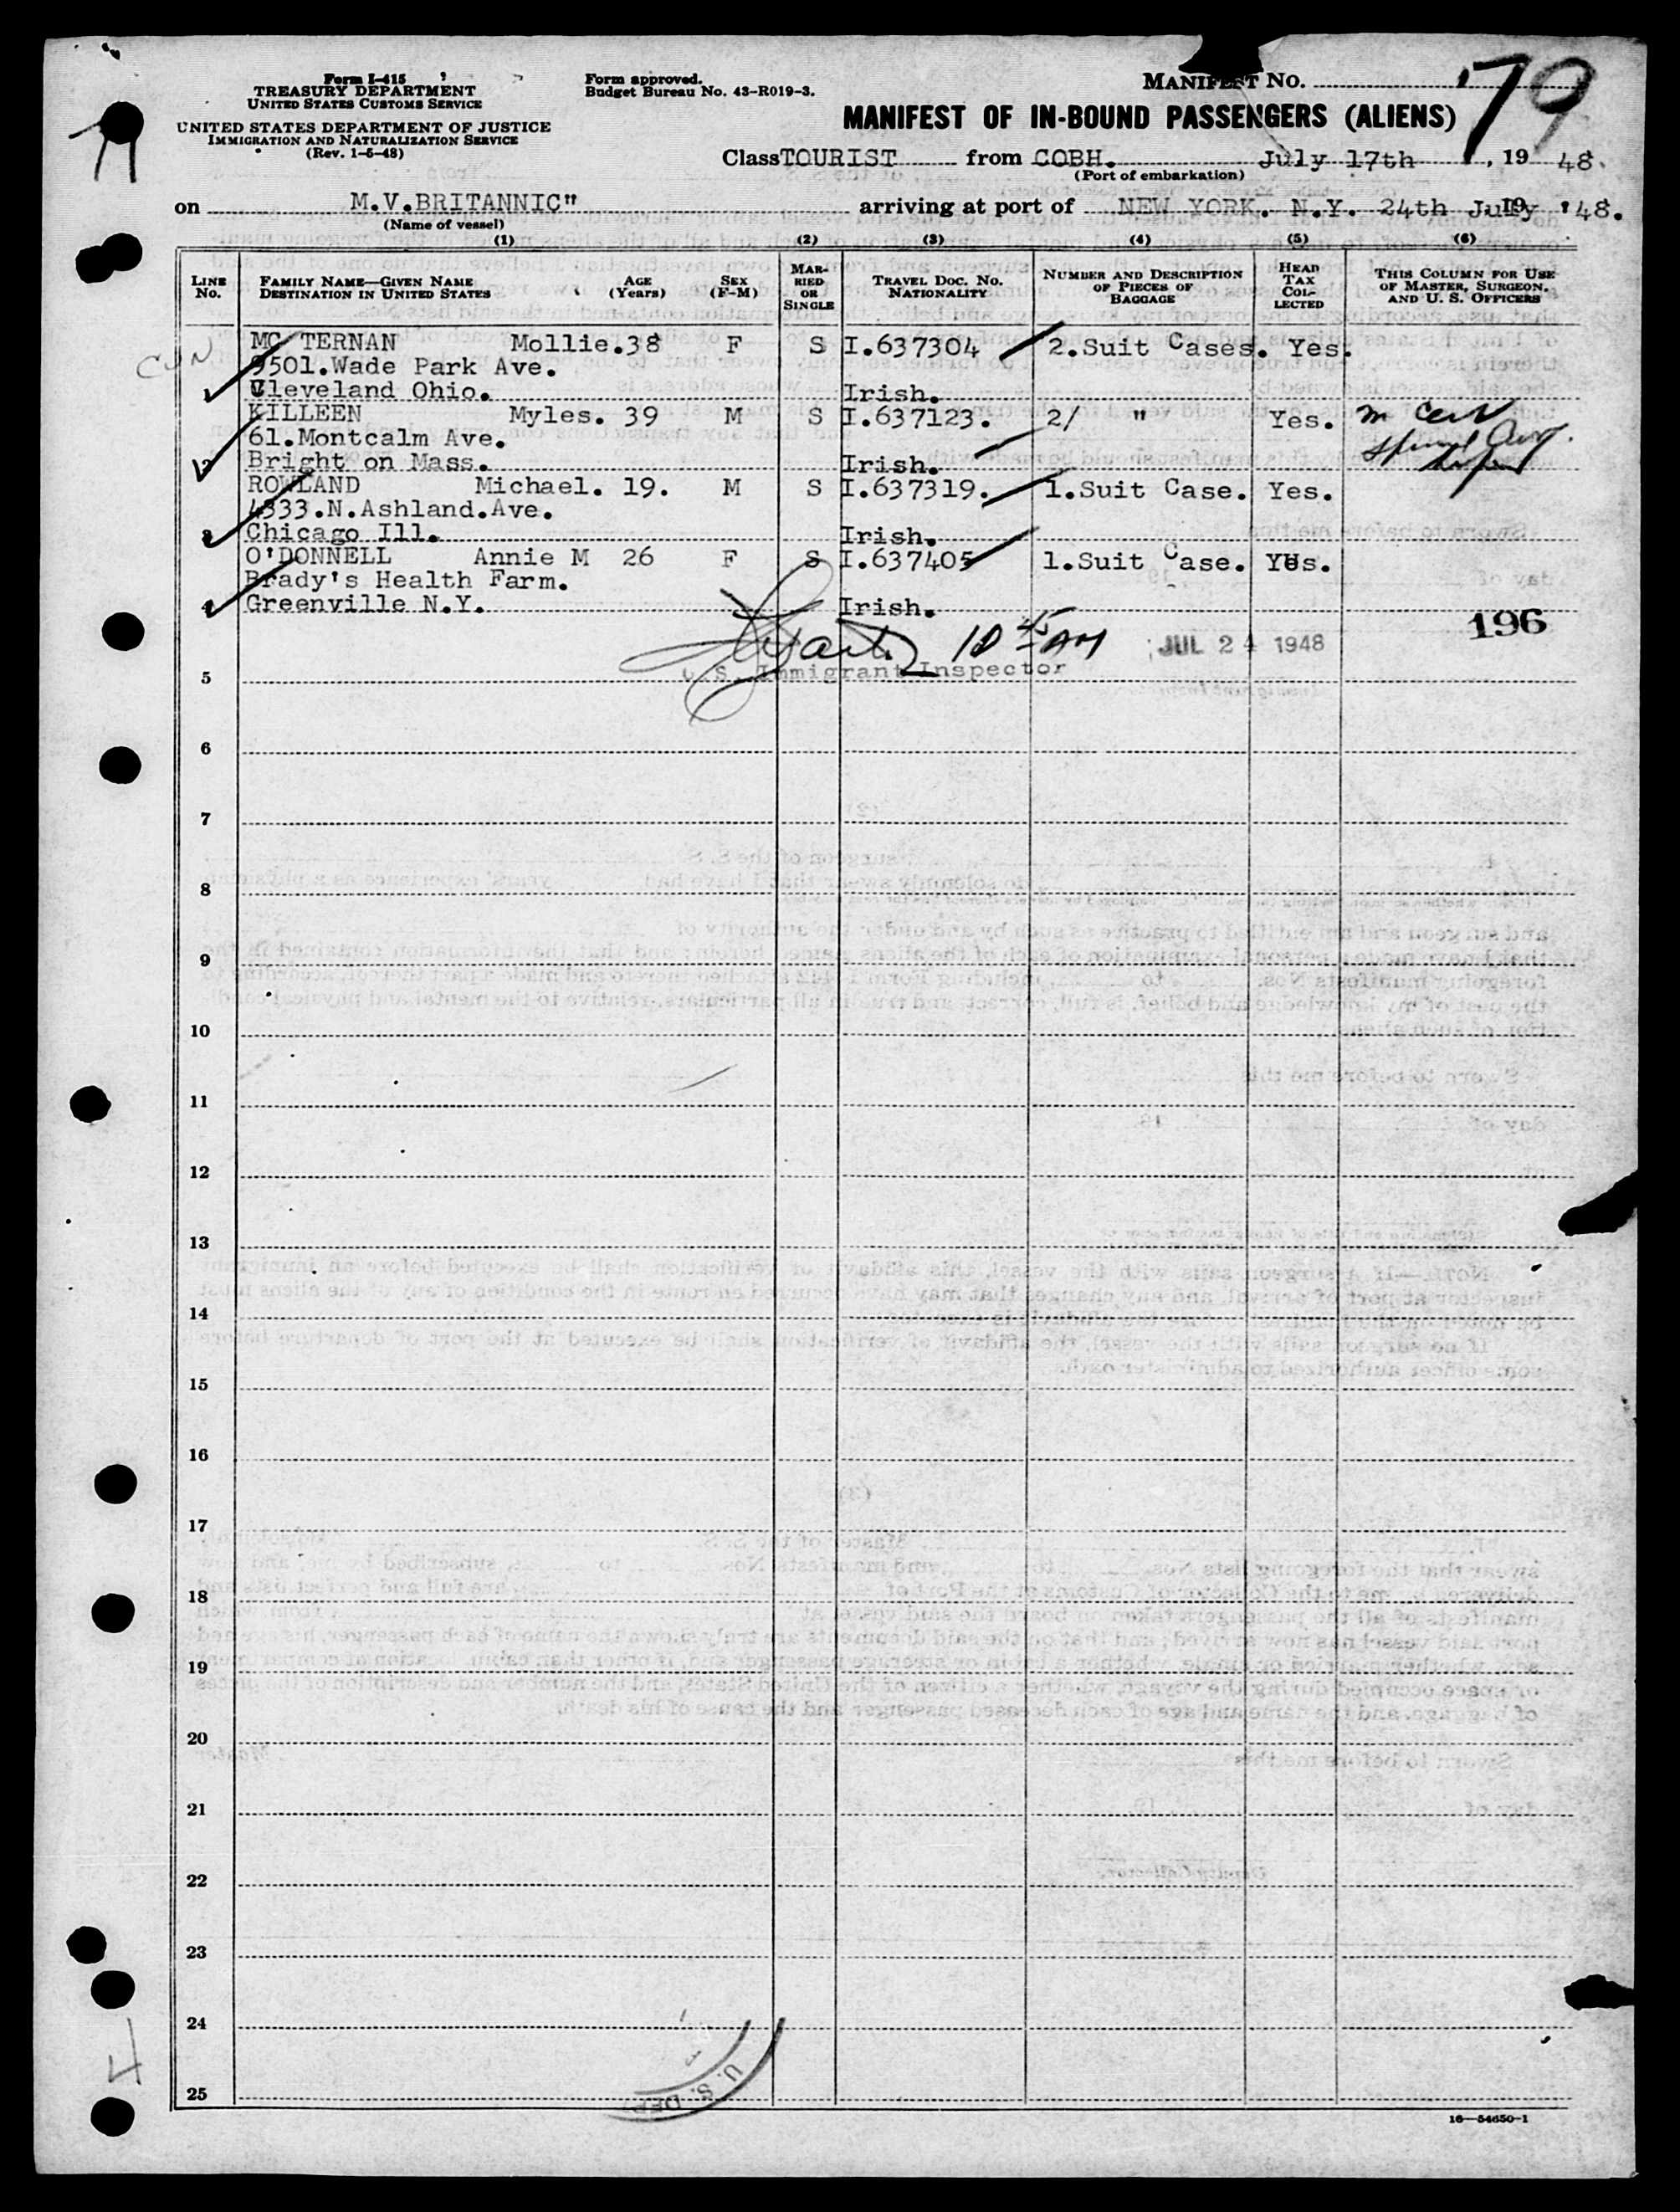 Form I-415
TREASURY DEPARTMENT
UNITED STATES CUSTOMS SERVICE
UNITED STATES DEPARTMENT OF JUSTICE
IMMIGRATION AND NATURALIZATION SERVICE
(Rev. 1-5-48)
Form approved.
Budget Bureau No. 43-R019-3.
MANIFEST No. 79
MANIFEST OF IN-BOUND PASSENGERS (ALIENS)
Class TOURIST from COBH. July 17th , 19 48.
(Port of embarkation)
on M.V.BRITANNIC" arriving at port of NEW YORK. N.Y. 24th July 19 '48.
(Name of vessel)
(1) (2) (3) (4) (5) (6)
LINE No. FAMILY NAME—GIVEN NAME DESTINATION IN UNITED STATES AGE (Years) SEX (F-M) MARRIED OR SINGLE TRAVEL DOC. NO. NATIONALITY NUMBER AND DESCRIPTION OF PIECES OF BAGGAGE HEAD TAX COLLECTED THIS COLUMN FOR USE OF MASTER, SURGEON, AND U. S. OFFICERS
MC TERNAN Mollie.38 F S I.637304 2.Suit Cases. Yes.
9501.Wade Park Ave.
1 Cleveland Ohio. Irish.
KILLEEN Myles. 39 M S I.637123. 2/ " Yes. m Cert
61.Montcalm Ave.
2 Bright on Mass. Irish.
ROWLAND Michael. 19. M S I.637319. 1.Suit Case. Yes.
4333.N.Ashland.Ave.
3 Chicago Ill. Irish.
O'DONNELL Annie M 26 F S I.637405 1.Suit Case. Yes.
Brady's Health Farm.
4 Greenville N.Y. Irish.
196
10 45 AM JUL 24 1948
U. S. Immigrant Inspector
5
6
7
8
9
10
11
12
13
14
15
16
17
18
19
20
21
22
23
24
4
25
U. S. DEP
16—54650-1